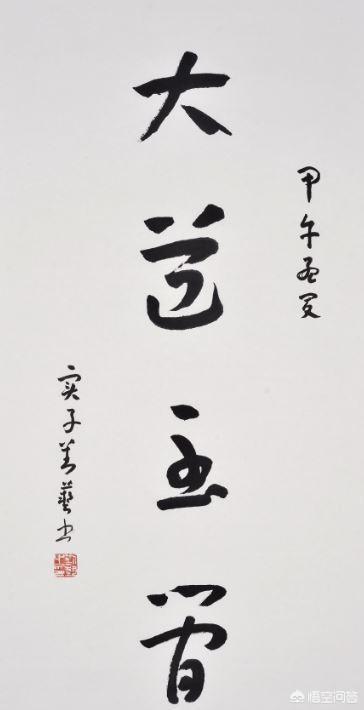 甲午孟夏
大道至简
实子善藝书
悟空问答